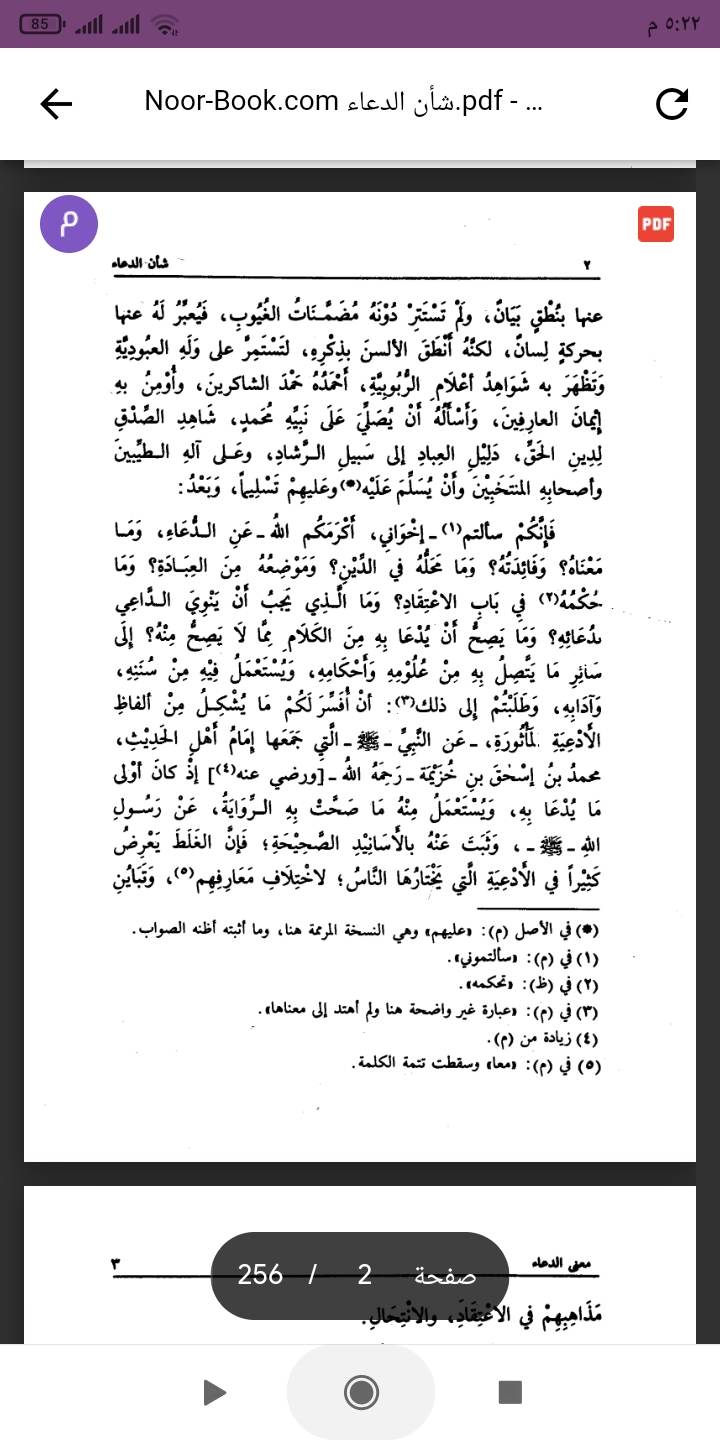 85
٥:٢٢ م
Noor-Book.com شأن الدعاء.pdf - ...
م
PDF
٢ شأن الدعاء
عنها بنُطْقِ بَيَانٌ، ولَمْ تَسْتَتِرْ دُوْنَهُ مُضَمَّنَاتُ الغُيُوبِ، فَيُعبِّرُ لَهُ عنها
بحركةِ لِسانٌ، لكنَّهُ أَنْطَقَ الألسنَ بِذِكْرِهِ، لتَسْتَمِرَّ على وَلَهِ العبُودِيَّةِ
وَتَظْهَرَ به شَوَاهِدُ أعْلَامِ الرُّبُوبِيَّةِ، أَحْمَدُهُ حَمْدَ الشاكرينَ، وأُوْمِنُ بهِ
إيمَانَ العارِفِينَ، وَأَسْأَلُهُ أَنْ يُصَلِّيَ عَلَى نَبِيِّهِ مُحَمدٍ، شَاهِدِ الصِّدْقِ
لِدِينِ الحَقِّ، دَلِيْلِ العِبادِ إلى سَبيلِ الرَّشادِ، وعَلى آلهِ الطيِّبينَ
وأصحابِهِ المنتَخَبِيْنَ وأَنْ يُسَلِّمَ عَلَيْه(*) وعليهِمْ تَسْلِيماً، وَبَعْدُ:
فَإنَّكُمْ سألتم(١) - إخْوَاني، أَكْرَمَكُم اللهُ - عَنِ الدُّعَاءِ، وَمَا
مَعْنَاهُ؟ وَفَائِدَتُهُ؟ وَمَا مَحَلُّهُ في الدِّيْنِ؟ وَمَوْضِعُهُ مِنَ العِبَادَةِ؟ وَمَا
حُكْمُهُ(٢) في بَابِ الاعْتِقَادِ؟ وَمَا الَّذِي يَجِبُ أَنْ يَنْوِيَ الدَّاعِي
بدُعَائِهِ؟ وَمَا يَصِحُّ أَنْ يُدْعَا بِهِ مِنَ الكَلَامِ مِمَّا لَا يَصِحُّ مِنْهُ؟ إلَى
سَائِرِ مَا يَتَّصِلُ بِهِ مِنْ عُلُومِهِ وَأَحْكَامِهِ، وَيُسْتَعْمَلُ فِيْهِ مِنْ سُنَنِهِ،
وَآدَابِهِ، وَطَلَبْتُمْ إلى ذلك(٣): أنْ أُفَسِّرَ لَكُمْ مَا يُشْكِلُ مِنْ ألفاظِ
الأَدْعِيَةِ المَأْثُورَةِ، - عَنِ النَّبِيِّ - ﷺ - الَّتي جَمَعَها إمَامُ أَهْلِ الحَدِيْثِ،
محمدُ بنُ إسْحٰقَ بنِ خُزَيْمَةَ - رَحِمَهُ اللهُ - [ورضي عنه(٤)] إذْ كانَ أوْلى
مَا يُدْعَا بِهِ، وَيُسْتَعْمَلُ مِنْهُ مَا صَحَّتْ بِهِ الرِّوَايَةُ، عَنْ رَسُولِ
اللهِ - ﷺ - ، وَثَبَتَ عَنْهُ بالأَسَانِيْدِ الصَّحِيْحَةِ؛ فَإنَّ الغَلَطَ يَعْرِضُ
كَثِيْراً في الأَدْعِيَةِ الَّتي يَخْتَارُهَا النَّاسُ؛ لاخْتِلَافِ مَعَارِفِهِم(٥)، وَتَبَايُنِ
(*) في الأصل (م): «عليهم» وهي النسخة المرممة هنا، وما أثبته أظنه الصواب.
(١) في (م): «سألتموني».
(٢) في (ظ): «تحكمه».
(٣) في (م): «عبارة غير واضحة هنا ولم أهتد إلى معناها».
(٤) زيادة من (م).
(٥) في (م): «معا» وسقطت تتمة الكلمة.
معنى الدعاء ٣
صفحة 2 / 256
مَذَاهِبِهِمْ في الاعْتِقَادِ، والانْتِحَالِ.